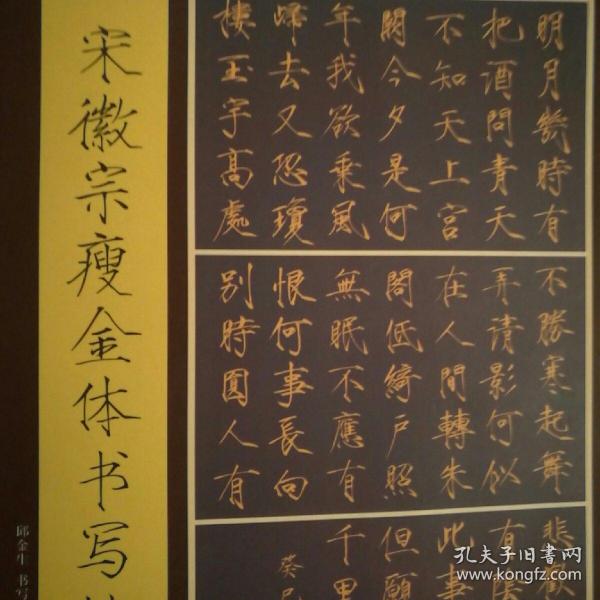 宋徽宗瘦金体书写
邱金生 书写
明月幾時有
把酒問青天
不知天上宮
闕今夕是何
年我欲乘風
歸去又恐瓊
樓玉宇高處
不勝寒起舞
弄清影何似
在人間轉朱
閣低綺戶照
無眠不應有
恨何事長向
别時圓人有
悲歡
有
此事
但願
千里
癸巳
孔夫子旧书网
www.kongfz.com